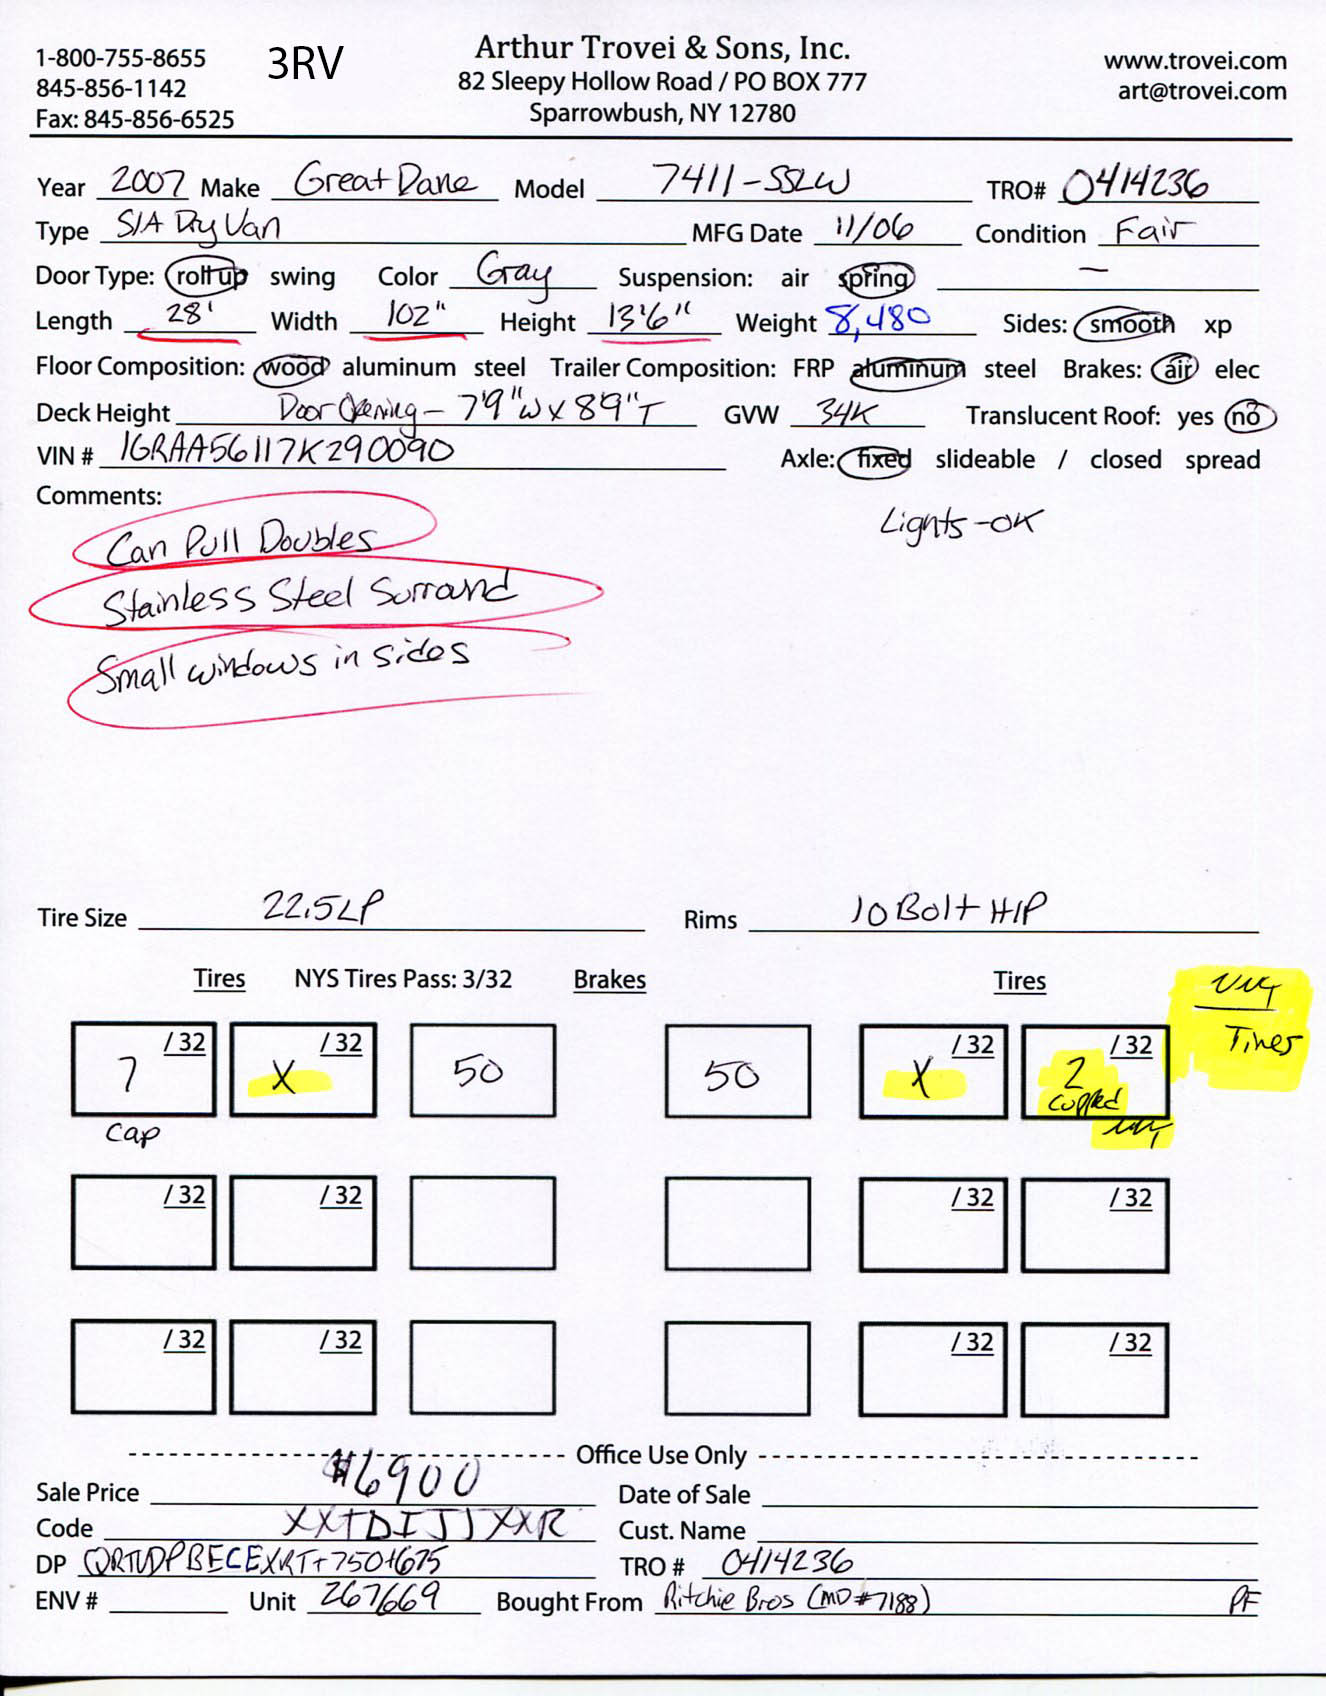 1-800-755-8655
845-856-1142
Fax: 845-856-6525
3RV
Arthur Trovei & Sons, Inc.
82 Sleepy Hollow Road / PO BOX 777
Sparrowbush, NY 12780
www.trovei.com
art@trovei.com
Year 2007 Make Great Dane Model 7411-SSLW TRO# 0414236
Type S/A Dry Van MFG Date 11/06 Condition Fair
Door Type: roll up swing Color Gray Suspension: air spring —
Length 28' Width 102" Height 13'6" Weight 8,480 Sides: smooth xp
Floor Composition: wood aluminum steel Trailer Composition: FRP aluminum steel Brakes: air elec
Deck Height Door Opening - 7'9"W x 8'9"T GVW 34K Translucent Roof: yes no
VIN # 1GRAA56117K290090 Axle: fixed slideable / closed spread
Comments:
Lights-OK
Can Pull Doubles
Stainless Steel Surround
Small windows in sides
Tire Size 22.5LP Rims 10 Bolt H/P
Tires NYS Tires Pass: 3/32 Brakes Tires
Tires
7 /32 X /32 50 50 X /32 2 /32
cupped
cap
/32 /32 /32 /32
/32 /32 /32 /32
Office Use Only
Sale Price $6900 Date of Sale
Code XXTDIJJXXR Cust. Name
DP QRTUDPBECEXRT+750+675 TRO # 0414236
ENV # Unit 267669 Bought From Ritchie Bros (MD#7188) PF